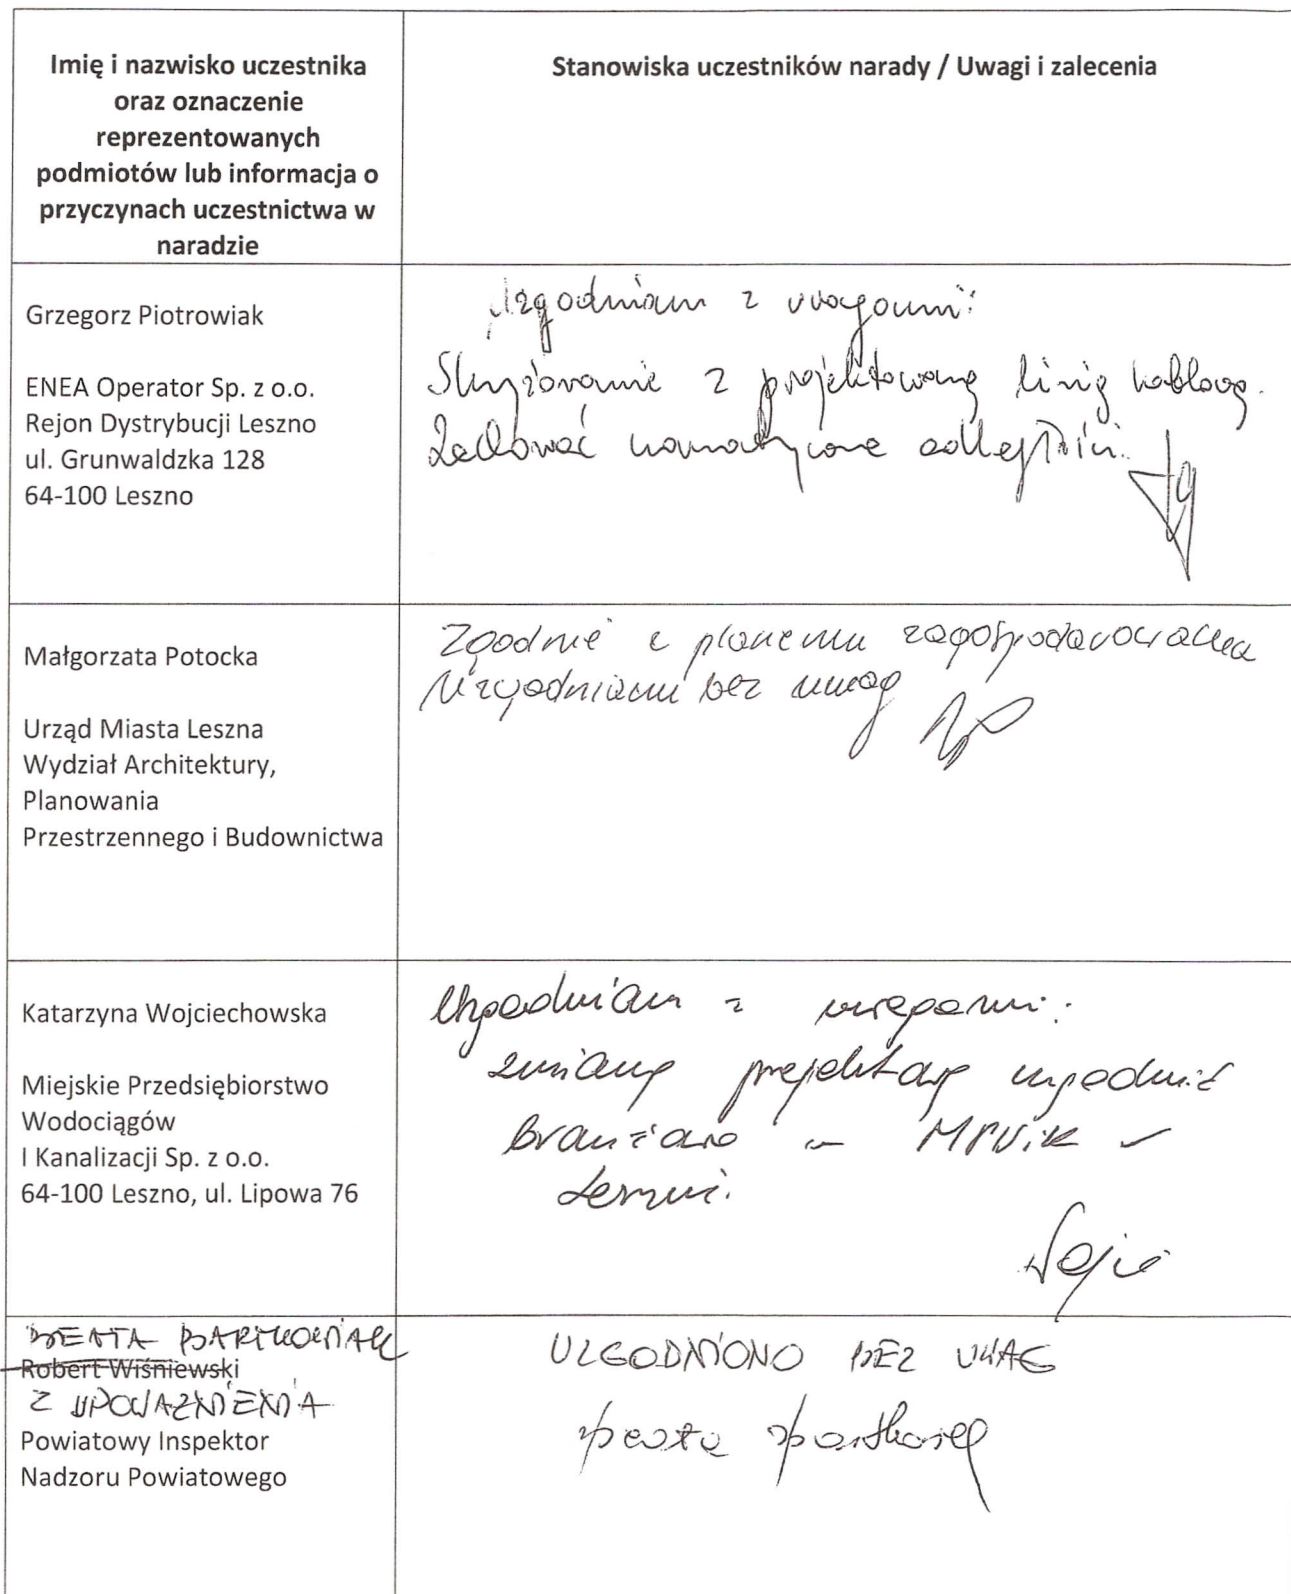 Imię i nazwisko uczestnika
oraz oznaczenie
reprezentowanych
podmiotów lub informacja o
przyczynach uczestnictwa w
naradzie
Stanowiska uczestników narady / Uwagi i zalecenia
Grzegorz Piotrowiak
ENEA Operator Sp. z o.o.
Rejon Dystrybucji Leszno
ul. Grunwaldzka 128
64-100 Leszno
Uzgodniam z uwagami:
Skrzyżowanie z projektowaną linią kablową.
Zachować normatywne odległości.
Małgorzata Potocka
Urząd Miasta Leszna
Wydział Architektury,
Planowania
Przestrzennego i Budownictwa
Zgodnie z planem zagospodarowania
Uzgodniam bez uwag
Katarzyna Wojciechowska
Miejskie Przedsiębiorstwo
Wodociągów
I Kanalizacji Sp. z o.o.
64-100 Leszno, ul. Lipowa 76
Uzgadniam z uwagami:
zmianę projektową uzgodnić
branżowo w MPWiK w
Lesznie.
BEATA BARTKOWIAK
Robert Wiśniewski
Z UPOWAŻNIENIA
Powiatowy Inspektor
Nadzoru Powiatowego
UZGODNIONO BEZ UWAG
Beata